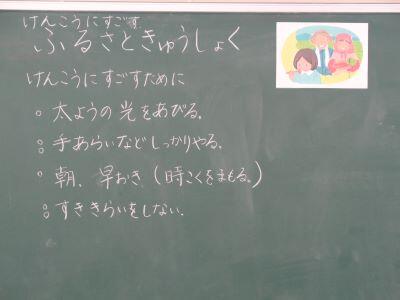 けんこうにすごす
ふるさときゅうしょく
けんこうにすごすために
○ 太ようの光をあびる。
○ 手あらいなどしっかりやる。
○ 朝、早おき(時こくをまもる。)
○ すききらいをしない。